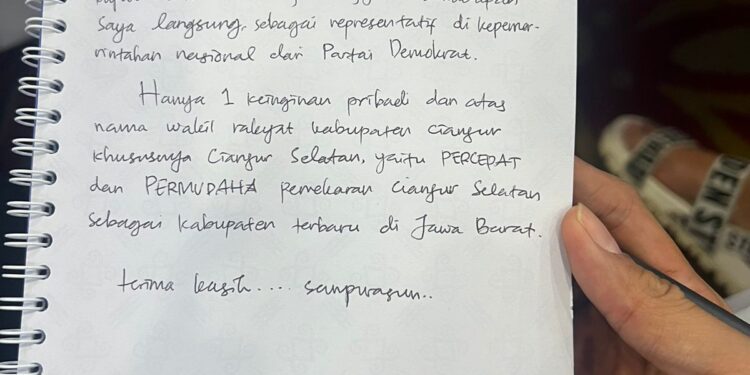 saya langsung, sebagai representatif di kepemer-
rintahan nasional dari Partai Demokrat.
Hanya 1 keinginan pribadi dan atas
nama wakil rakyat kabupaten cianjur
khususnya Cianjur Selatan, yaitu PERCEPAT
dan PERMUDAHA pemekaran Cianjur Selatan
sebagai kabupaten terbaru di Jawa Barat.
terima kasih .... sampurasun..